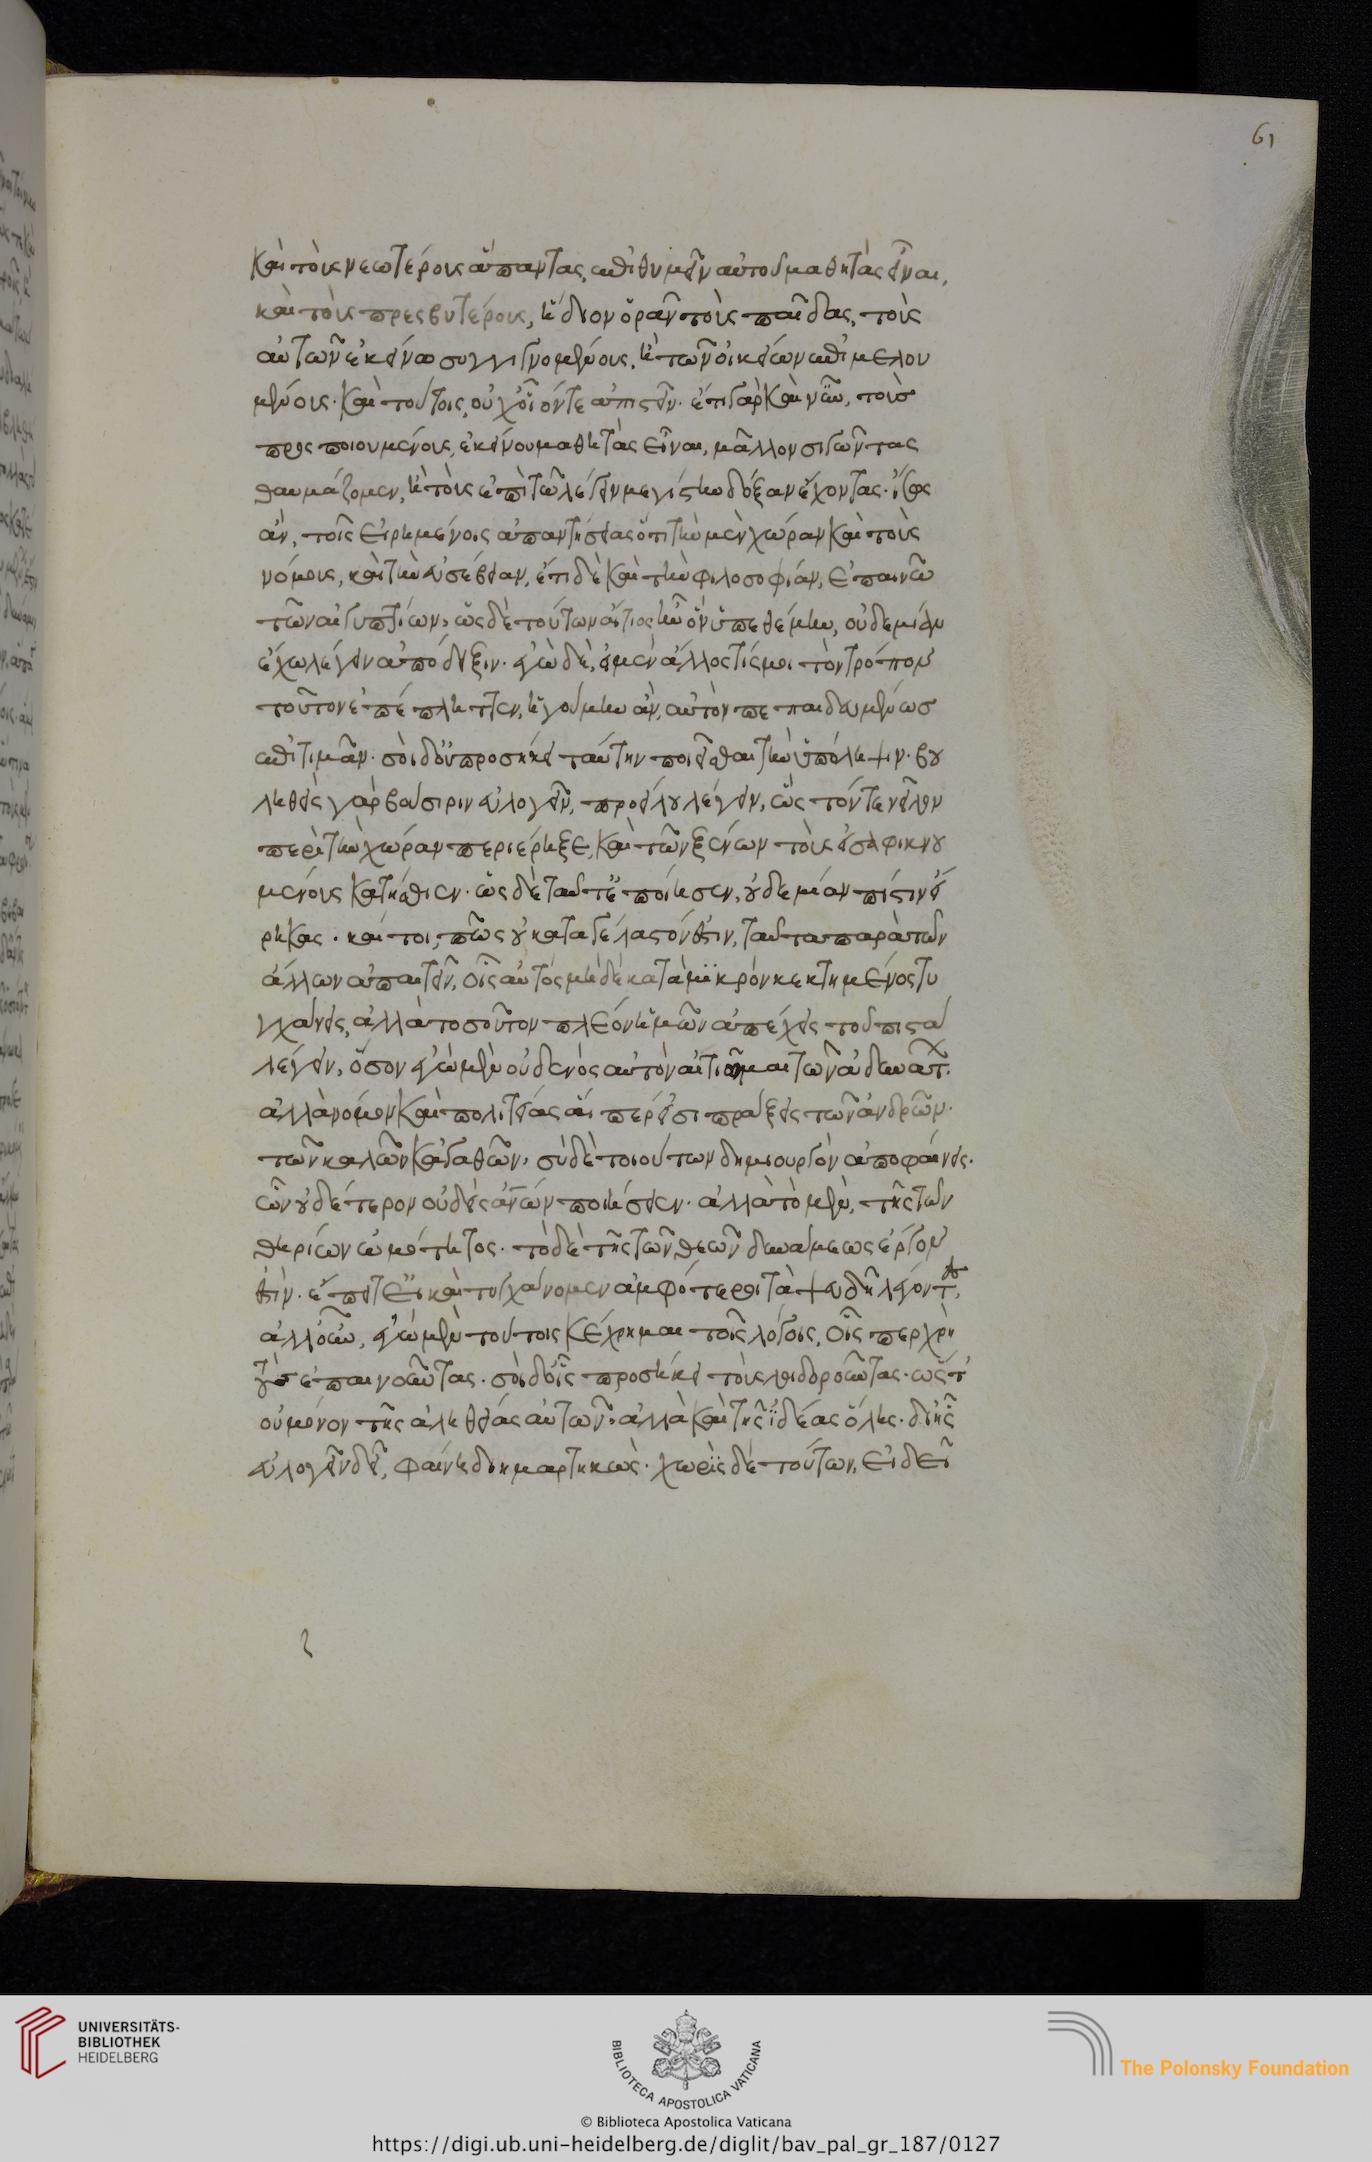 61
καὶ τοὺς νεωτέρους ἅπαντας, ἐπιθυμεῖν αὐτοῦ μαθητὰς εἶναι,
καὶ τοὺς πρεσβυτέρους, ἥδιον ὁρᾶν τοὺς παῖδας, τοὺς
αὐτῶν ἐκείνω συγγιγνομένους, ἢ τῶν οἰκείων ἐπιμελου
μένους. καὶ τούτοις, οὐχ οἷόν τε ἀπιστεῖν. ἔτι γὰρ καὶ νῦν, τοὺσ
προσποιουμένους, ἐκείνου μαθητὰς εἶναι, μᾶλλον σιγῶντας
θαυμάζομεν, ἢ τοὺς ἐπὶ τῶ λέγειν μεγίστην δόξαν ἔχοντας. ἴσως
ἂν, τοῖς εἰρημένοις ἀπαντήσειας ὅτι τὴν μὲν χώραν καὶ τοὺς
νόμους, καὶ τὴν εὐσέβειαν, ἔτι δὲ καὶ τὴν φιλοσοφίαν, ἐπαινῶ
τῶν αἰγυπτίων, ὡς δὲ τούτων αἴτιος ἦν ὃν ὑπεθέμην, οὐδεμίαν
ἔχω λέγειν ἀπόδειξιν. ἐγὼ δὲ, εἰ μὲν ἄλλος τίς μοι τὸν τρόπον
τοῦτον ἐπέπληττεν, ἡγούμην ἂν, αὐτὸν πεπαιδευμένωσ
ἐπιτιμᾶν. σοὶ δ' οὐ προσήκει ταύτην ποιεῖσθαι τὴν ὑπόληψιν. βου
ληθεὶς γὰρ βούσιριν εὐλογεῖν, προείλου λέγειν, ὡς τόν τε νεῖλον
περὶ τὴν χώραν περιέρρηξε, καὶ τῶν ξένων τοὺς εἰσαφικνου
μένους κατήσθιεν. ὡς δὲ ταῦτ' ἐποίησεν, οὐδεμίαν πίστιν εἴ
ρηκας. καίτοι, πῶς οὐ καταγέλαστόν ἐστιν, ταῦτα παρὰ τῶν
ἄλλων ἀπαιτεῖν, οἷς αὐτὸς μηδὲ κατὰ μικρὸν κεκτημένος τυ
γχάνεις, ἀλλὰ τοσοῦτον πλέον ἡμῶν ἀπέχεις τοῦ πιστὰ
λέγειν, ὅσον ἐγὼ μὲν οὐδενὸς αὐτὸν αἰτιῶμαι τῶν ἀδυνάτ.
ἀλλὰ νόμων καὶ πολιτείας αἵ περ εἰσι πράξεις τῶν ἀνδρῶν.
τῶν καλῶν κἀγαθῶν, σὺ δὲ τοιούτων δημιουργὸν ἀποφαίνεις.
ὧν οὐδέτερον οὐδεὶς ἀν̅ών ποιήσειεν. ἀλλὰ τὸ μὲν, τῆς τῶν
θηρίων ὠμότητος. τὸ δὲ τῆς τῶν θεῶν δυνάμεως ἔργον
ἐστίν. ἔπειτ' εἰ καὶ τυγχάνομεν ἀμφότεροι τὰ ψευδῆ λέγοντ,
ἀλλ' οὖν, ἐγὼ μὲν τούτοις κέχρημαι τοῖς λόγοις, οἷς περ χρὴ
τοὺσ ἐπαινοῦντας. σὺ δ' οἷς προσήκει τοὺς λοιδοροῦντας. ὥστ'
οὐ μόνον τῆς ἀληθείας αὐτῶν, ἀλλὰ καὶ τῆς ἰδέας ὅλης. δι' ἧς
εὐλογεῖν δεῖ, φαίνη διημαρτηκώς. χωρὶς δὲ τούτων, εἰ δεῖ
UNIVERSITÄTS-
BIBLIOTHEK
HEIDELBERG
BIBLIOTECA APOSTOLICA VATICANA
The Polonsky Foundation
© Biblioteca Apostolica Vaticana
https://digi.ub.uni-heidelberg.de/diglit/bav_pal_gr_187/0127